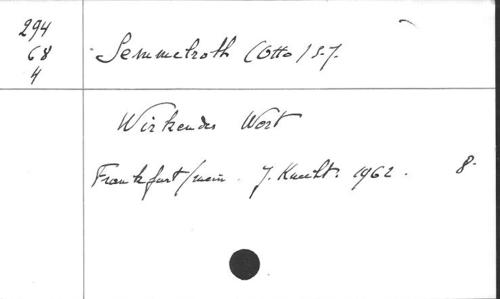 294
68
4
Semmelroth (Otto) S.J.
Wirkendes Wort
Frankfurt/Mein. J. Knecht. 1962. 8.